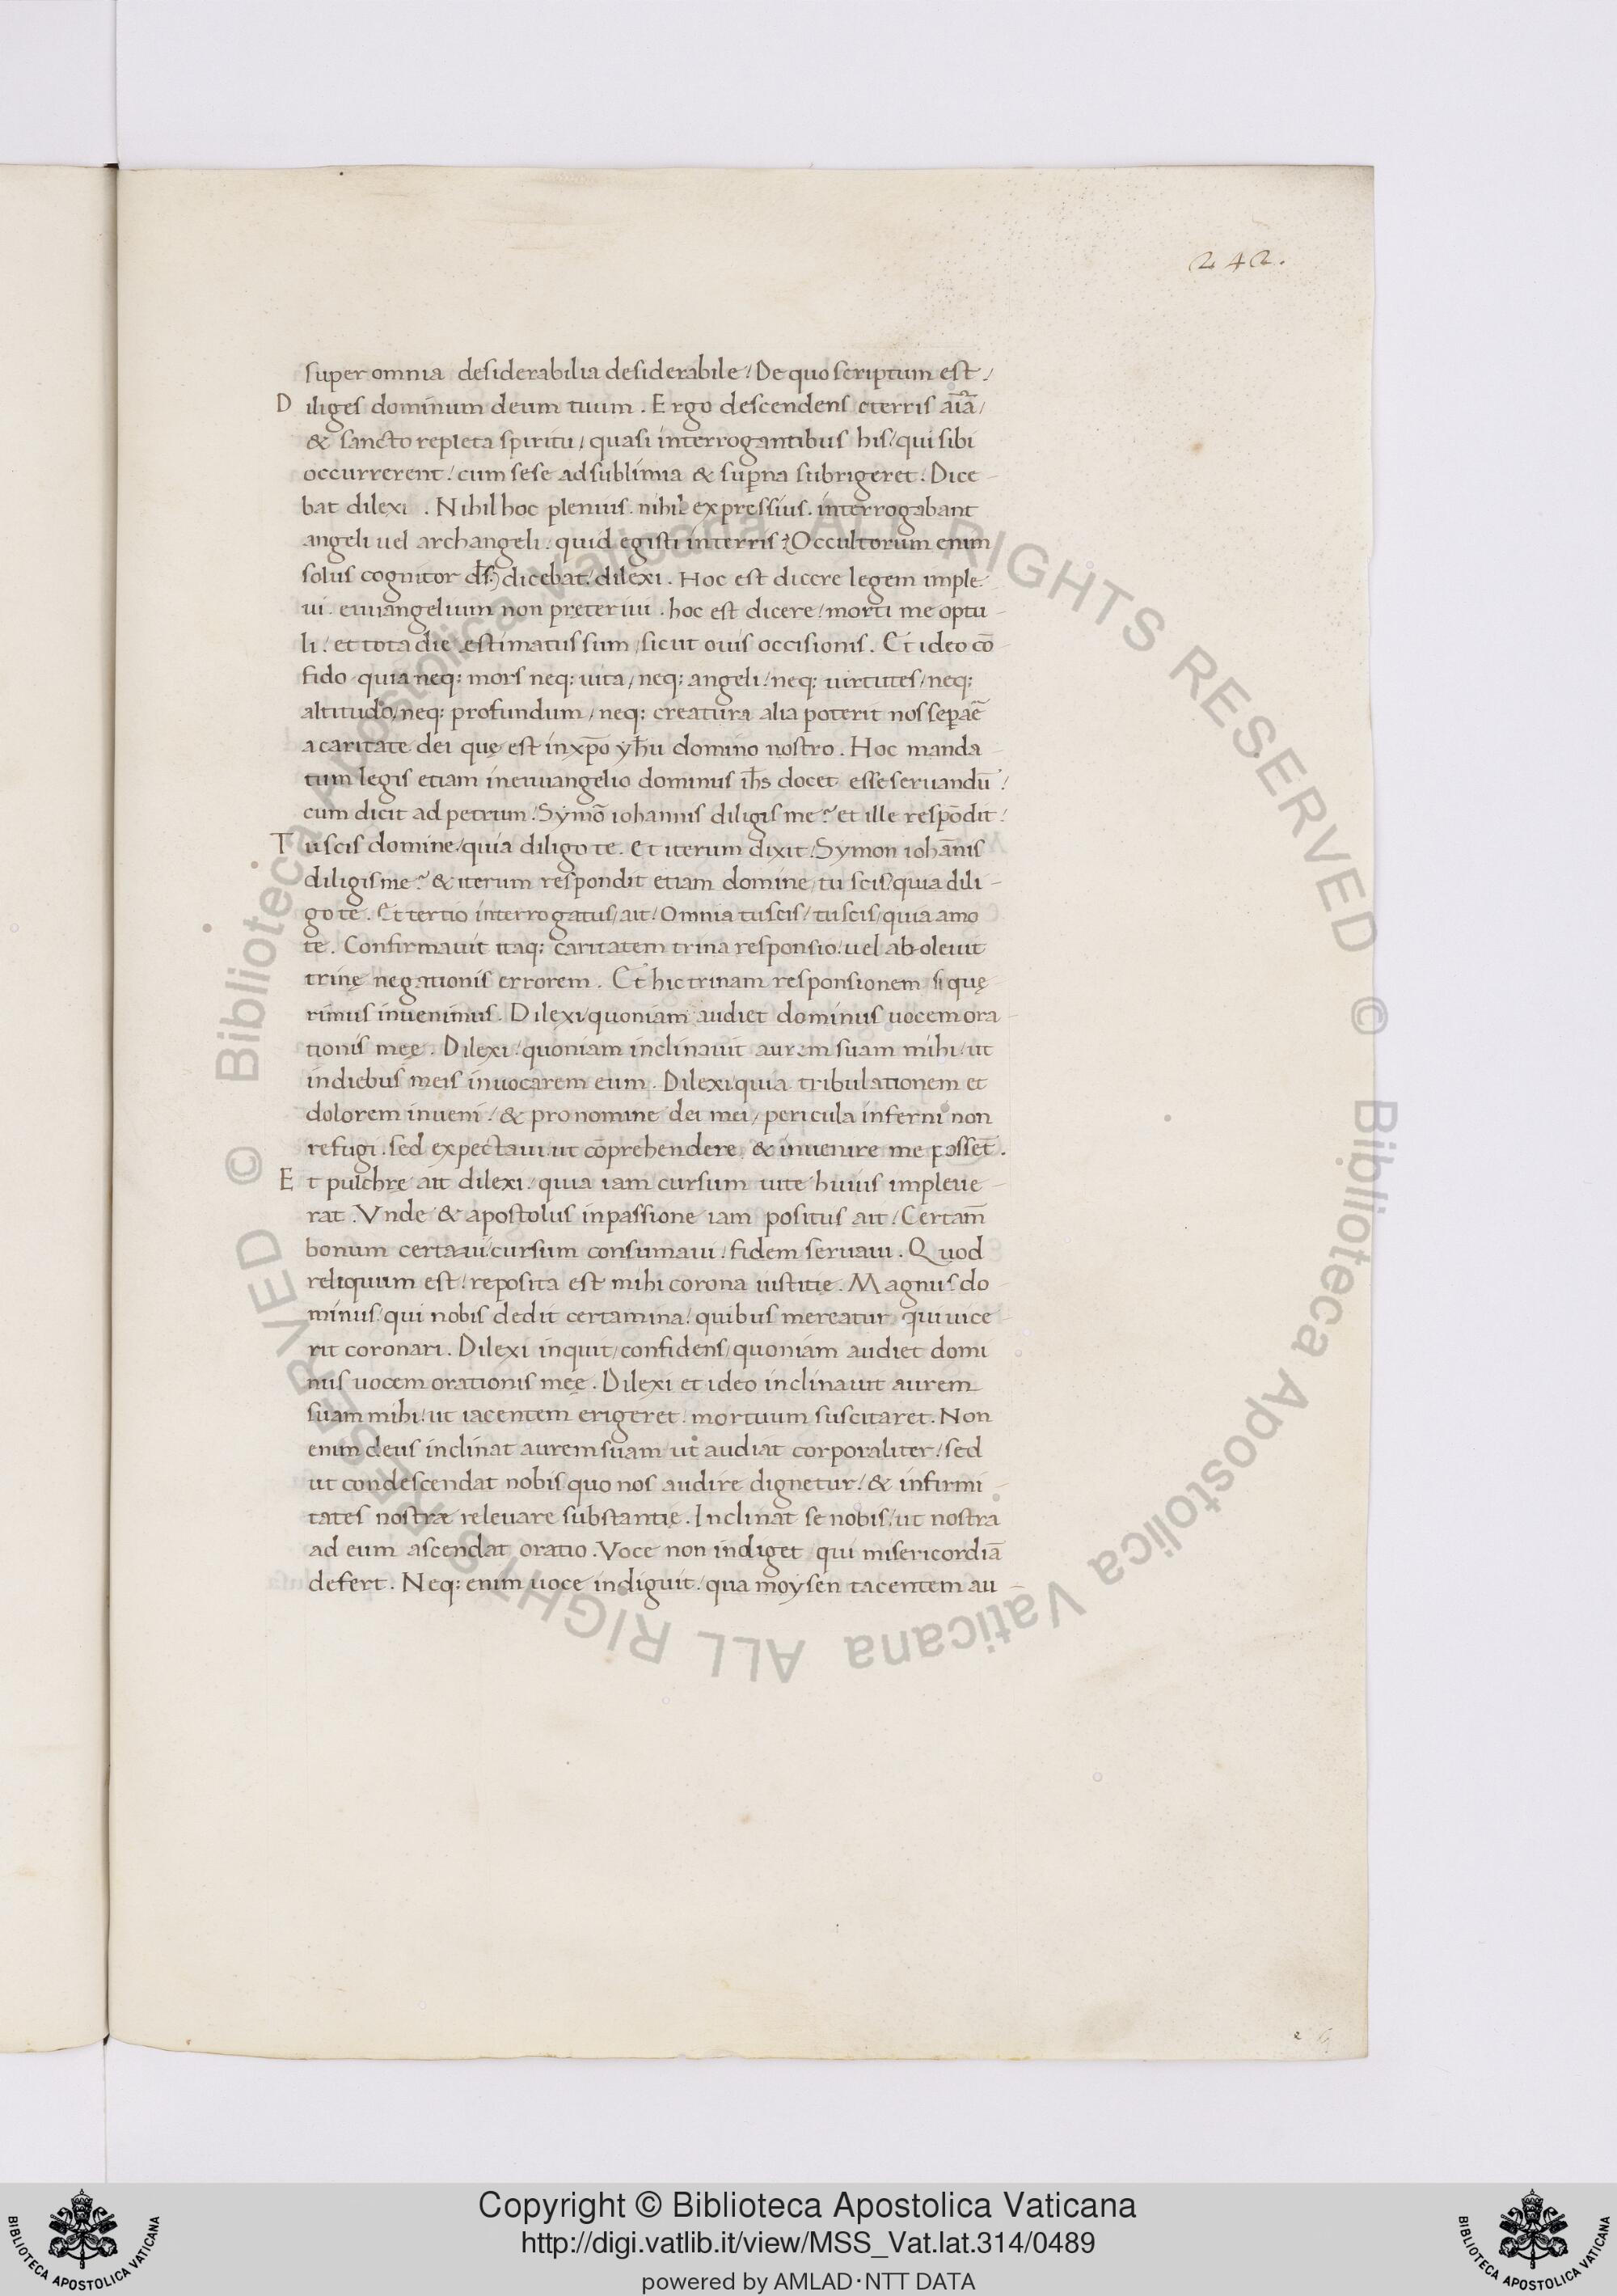 242.
super omnia desiderabilia desiderabile / De quo scriptum est /
Diliges dominum deum tuum . Ergo descendens eterris aīā /
& sancto repleta spiritu / quasi interrogantibus his / qui sibi
occurrerent / cum sese ad sublimia & suꝑna subrigeret . Dice-
bat dilexi . Nihil hoc plenius . nihil expressius . interrogabant
angeli uel archangeli / quid egisti interris ? (Occultorum enim
solus cognitor d̄s ) dicebat / dilexi . Hoc est dicere legem imple-
ui . euuangelium non preteriui . hoc est dicere / morti me optu-
li / et tota die estimatus sum / sicut ouis occisionis . Et ideo cō
fido quia neq: mors neq: uita / neq: angeli / neq: uirtutes / neq:
altitudo / neq: profundum / neq: creatura alia poterit nos seꝑaē
a caritate dei quę est in xp̄o yh̄u domino nostro . Hoc manda-
tum legis etiam in euuangelio dominus ih̄s docet esse seruandū /
cum dicit ad petrum / Symō iohannis diligis me ? et ille respōdit /
Tu scis domine / quia diligo te . Et iterum dixit / Symon iohānis
diligis me ? & iterum respondit etiam domine / tu scis / quia dili-
go te . Et tertio interrogatus / ait / Omnia tu scis / tu scis / quia amo
te . Confirmauit itaq: caritatem trina responsio / uel ab oleuit
trinę negationis errorem . Et hic trinam responsionem si quę
rimus inuenimus . Dilexi / quoniam audiet dominus uocem ora-
tionis meę . Dilexi / quoniam inclinauit aurem suam mihi / ut
in diebus meis inuocarem eum . Dilexi quia tribulationem et
dolorem inueni / & pro nomine dei mei / pericula inferni non
refugi . sed expectaui ut cōprehendere & inuenire me possēt .
Et pulchre ait dilexi / quia iam cursum uite huius impleue-
rat . Vnde & apostolus in passione iam positus ait / Certam̄
bonum certaui / cursum consumaui / fidem seruaui . Quod
reliquum est / reposita est mihi corona iustitię . Magnus do
minus / qui nobis dedit certamina / quibus mereatur qui uice-
rit coronari . Dilexi inquit / confidens / quoniam audiet domi
nus uocem orationis meę . Dilexi et ideo inclinauit aurem
suam mihi / ut iacentem erigeret / mortuum suscitaret . Non
enim deus inclinat aurem suam ut audiat corporaliter / sed
ut condescendat nobis quo nos audire dignetur / & infirmi-
tates nostræ releuare substantię . Inclinat se nobis / ut nostra
ad eum ascendat oratio . Voce non indiget qui misericordiā
defert . Neq: enim uoce indiguit / qua moysen tacentem au-
© Biblioteca Apostolica Vaticana ALL RIGHTS RESERVED © Biblioteca Apostolica Vaticana ALL RIGHTS RESERVED
Copyright © Biblioteca Apostolica Vaticana
http://digi.vatlib.it/view/MSS_Vat.lat.314/0489
powered by AMLAD·NTT DATA
BIBLIOTECA APOSTOLICA VATICANA
BIBLIOTECA APOSTOLICA VATICANA